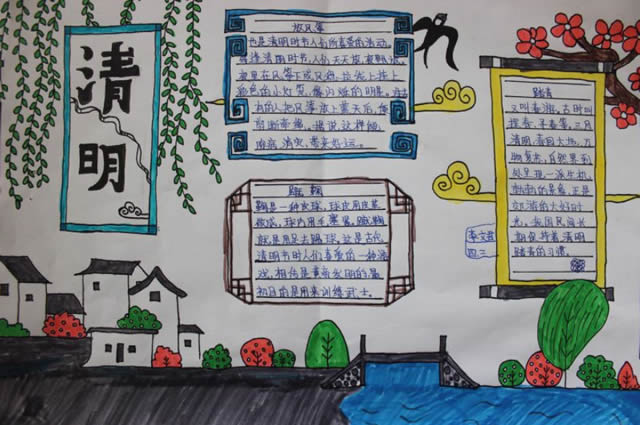 清
明
放风筝
也是清明时节人们所喜爱的活动。
每逢清明时节,人们不仅白天放,夜间也放
夜里在风筝下或风稳拉线上挂上
彩色的小灯笼,像闪烁的明星。
有的人把风筝放上蓝天后,便
剪断牵线,据说这样能
除病消灾,带来好运。
蹴鞠
鞠是一种皮球,球皮用皮革
做成,球内用毛塞紧。蹴鞠
就是用足去踢球。这是古代
清明节时人们喜爱的一种游
戏,相传是黄帝发明的,最
初目的是用来训练武士。
踏青
又叫春游。古时叫
探春、寻春等。三月
清明,春回大地,万
物复苏,自然界到
处呈现一派生机
勃勃的景象,正是
郊游的大好时
光。我国民间长
期保持着清明
踏青的习惯。
四三